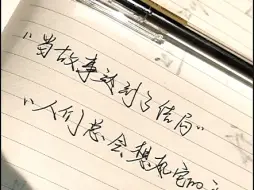 "当故事达到了结局"
"人们总会想起它的